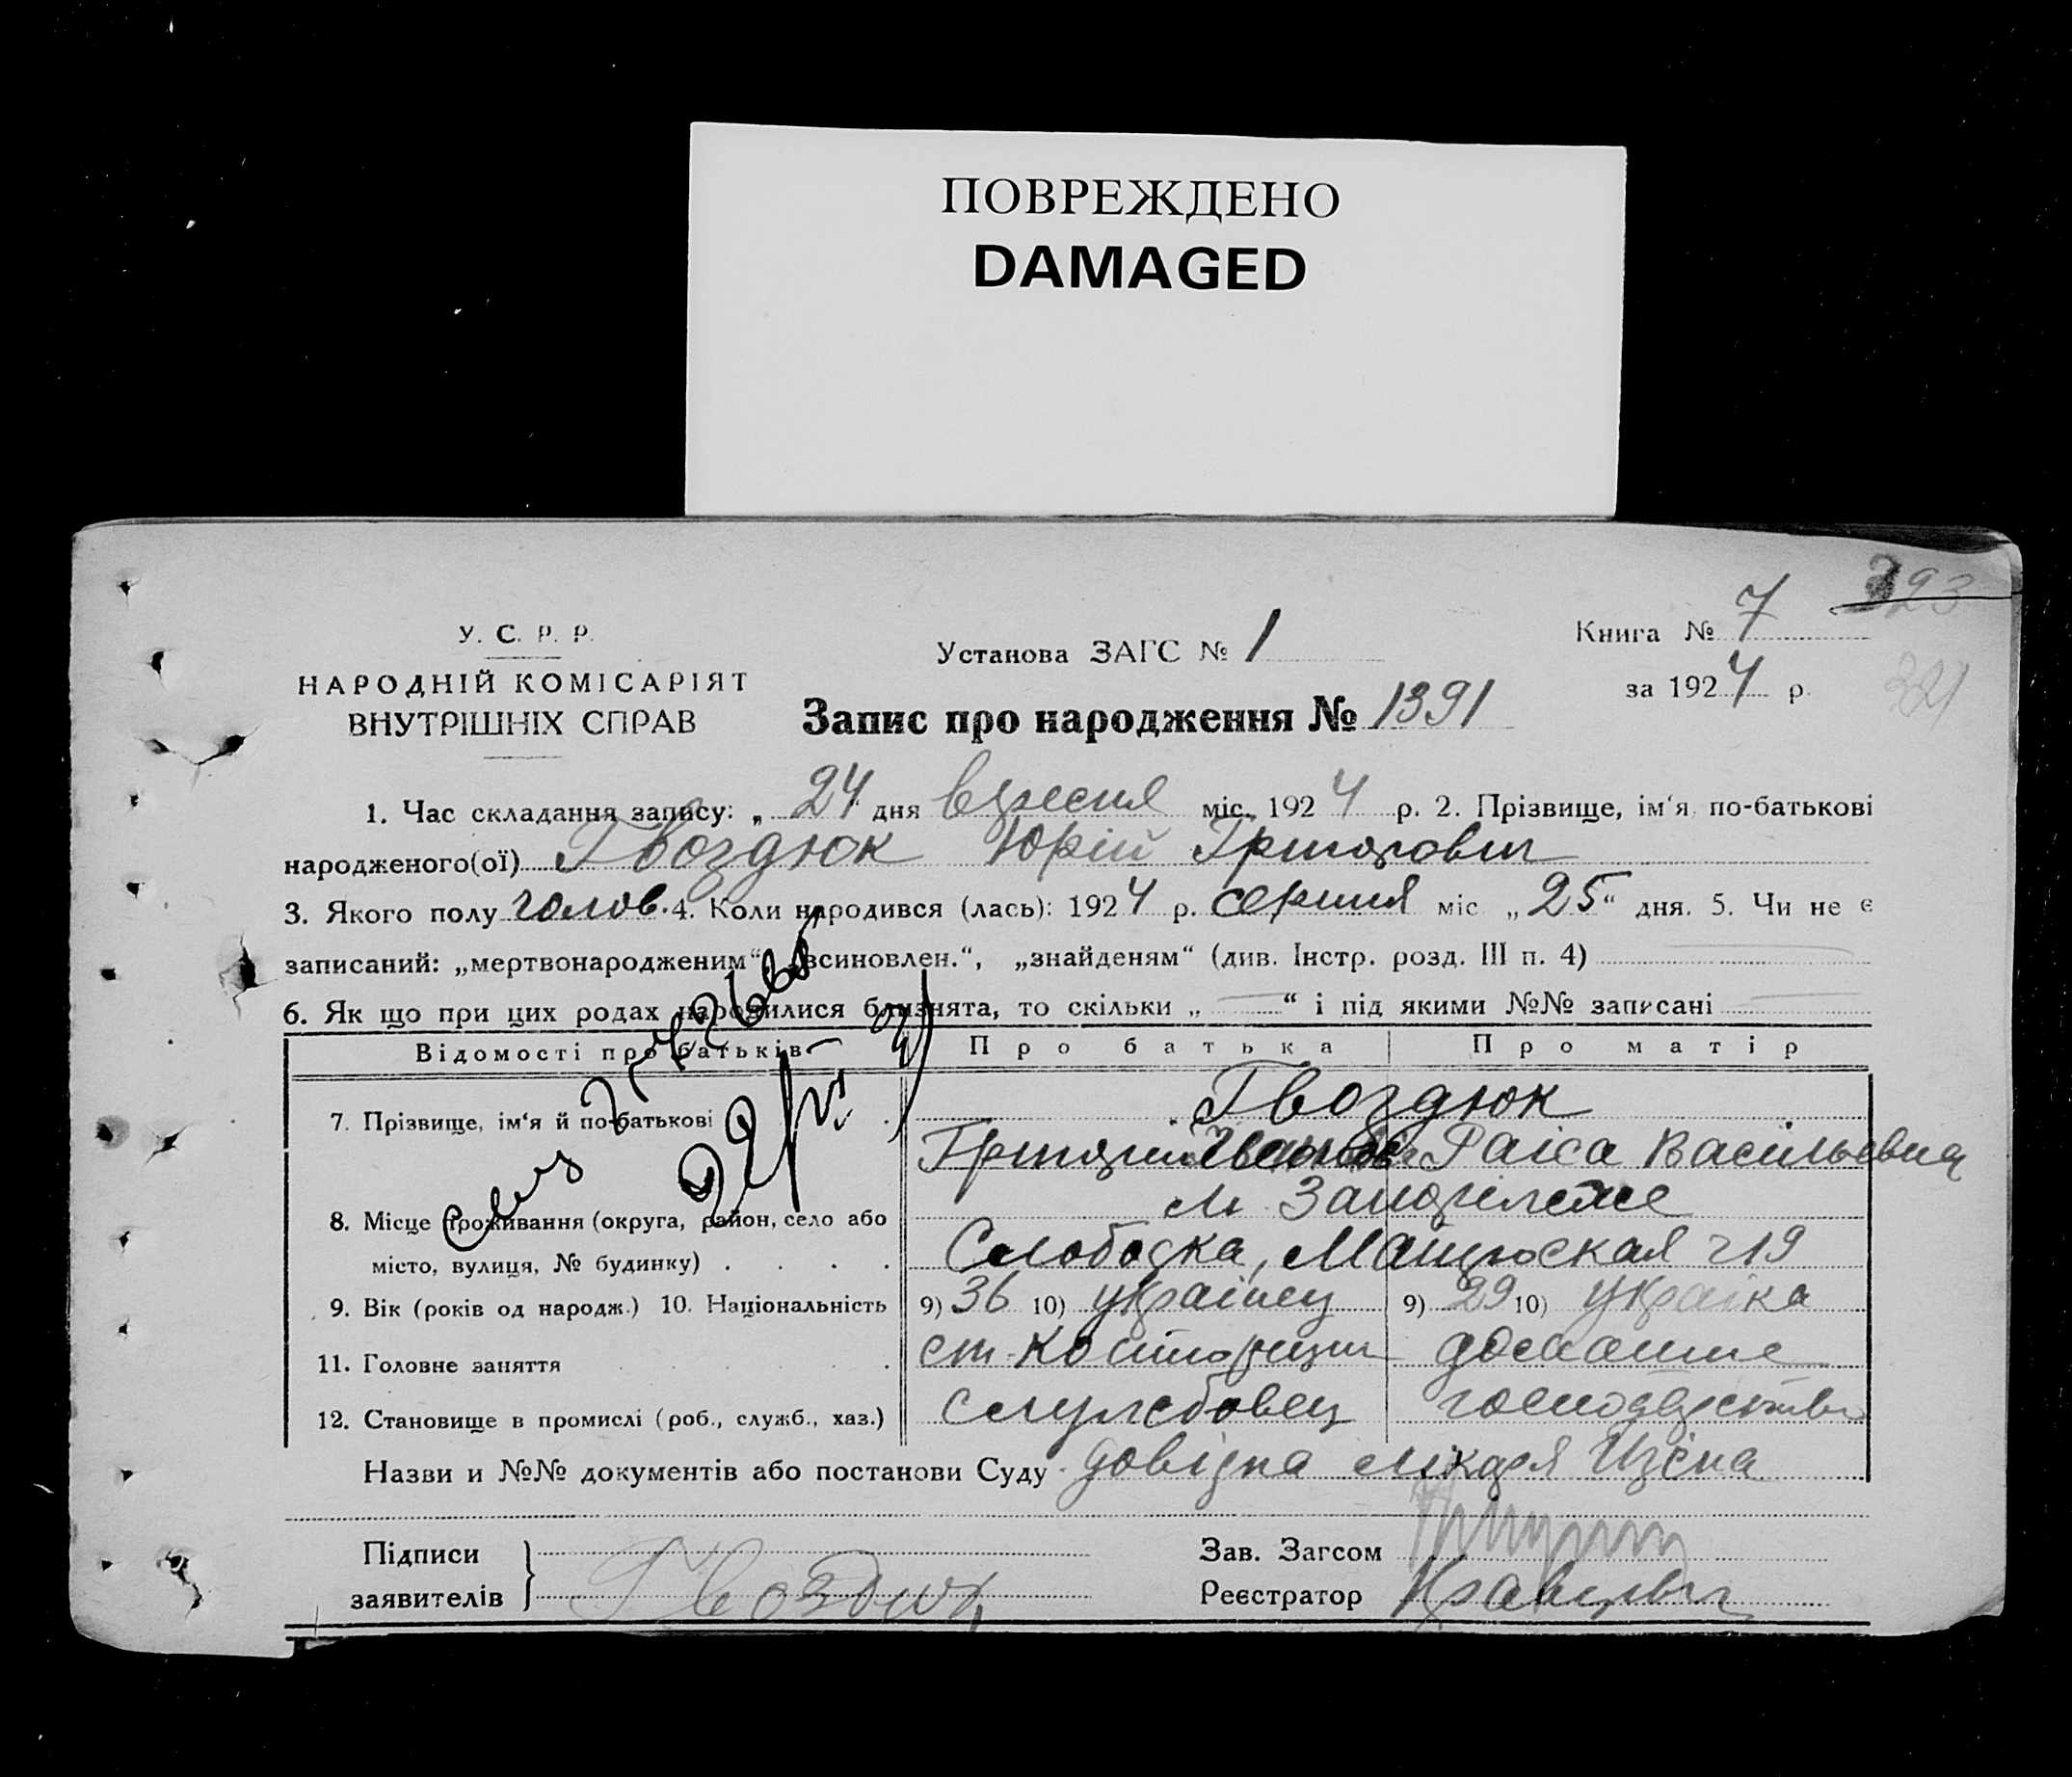 ПОВРЕЖДЕНО
DAMAGED
У. С. Р. Р.
НАРОДНІЙ КОМІСАРІЯТ
ВНУТРІШНІХ СПРАВ
Установа ЗАГС № 1
Книга № 7
за 1924 р.
323
321
Запис про народження № 1391
1. Час складання запису: „ 24 дня вересня міс. 1924 р. 2. Прізвище, ім‘я по-батькові
народженого(ої) Гвоздюк Юрій Григорович
3. Якого полу чолов. 4. Коли народився (лась): 1924 р. серпня міс „25“ дня. 5. Чи не є
записаний: „мертвонародженим“, „всиновлен.“, „знайденям“ (див. Інстр. розд. III п. 4)
6. Як що при цих родах народилися близнята, то скільки „ — “ і під якими №№ записані
Відомості про батьків Про батька Про матір
7. Прізвище, ім‘я й по-батькові Гвоздюк
Раіса Васильевна
8. Місце проживання (округа, район, село або
місто, вулиця, № будинку) Слободка, 19
9. Вік (років од народж.) 10. Національність 9) 36 10) українец 9) 29 10) украіка
11. Головне заняття ст. домашне
12. Становище в промислі (роб., служб., хаз.) службовец господарство
Назви и №№ документів або постанови Суду довідка лікаря
Підписи
заявителів Гвоздюк
Зав. Загсом
Реєстратор